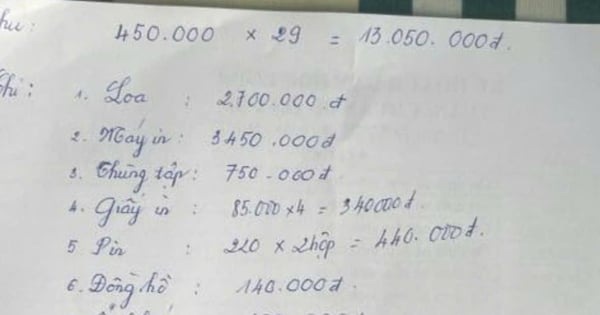 Thu: 450.000 × 29 = 13.050.000đ.
Chi: 1. Loa : 2.700.000.đ
2. Máy in: 3450.000đ
3. Thùng tập: 750.000đ.
4. Giấy in : 85.000 x 4 = 340000đ.
5 Pin : 220 x 2hộp = 440.000đ.
6. Đồng hồ : 140.000đ.